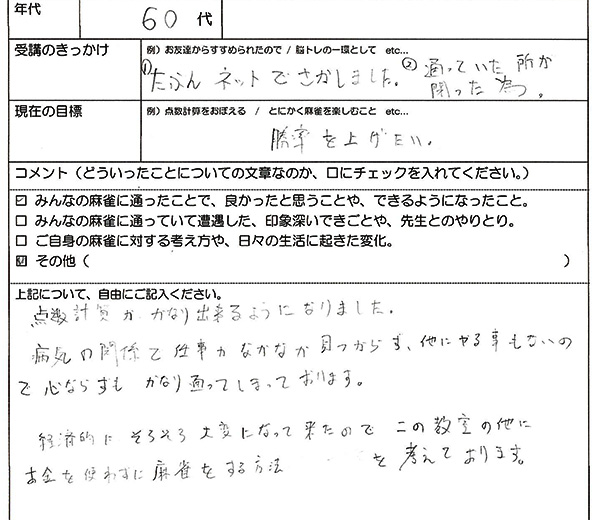 年代
60 代
受講のきっかけ
例）お友達からすすめられたので / 脳トレの一環として etc...
① たぶん ネットでさがしました。② 通っていた 所が
閉った 為。
現在の目標
例）点数計算をおぼえる / とにかく麻雀を楽しむこと etc...
勝率を上げたい.
コメント（どういったことについての文章なのか、口にチェックを入れてください。）
☑ みんなの麻雀に通ったことで、良かったと思うことや、できるようになったこと。
□ みんなの麻雀に通っていて遭遇した、印象深いできごとや、先生とのやりとり。
□ ご自身の麻雀に対する考え方や、日々の生活に起きた変化。
☑ その他（ ）
上記について、自由にご記入ください。
点数計算が かなり出来るようになりました.
病気の関係で仕事がなかなか見つからず、他にやる事もないの
で心ならずも かなり通ってしまっております。
経済的に そろそろ 大変になって来たので この教室の他に
お金を使わずに麻雀をする方法 を考えております。